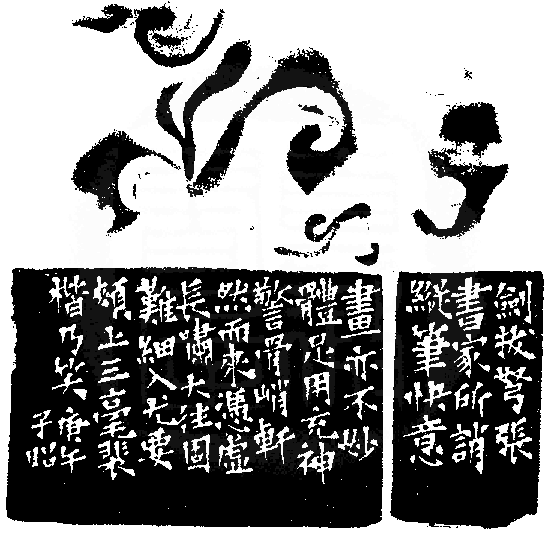 劍拔弩張
書家所誚
縱筆快意
畫亦不妙
體足用充神
警骨峭軒
然而來憑虛
長嘯大往固
難細入尤要
頰上三毫裴
楷乃笑庚午
子昭